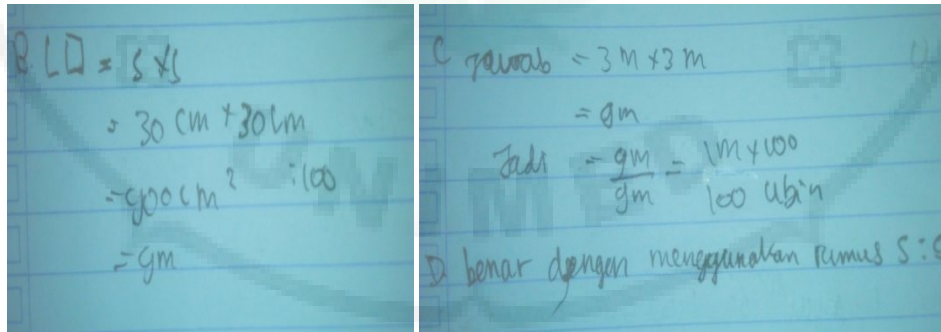 B. L□ = s x s
= 30 cm x 30 cm
= 900 cm² :100
= 9m
C jawab = 3 m x 3 m
= 9m
Jadi = 9m/9m = 1m x 100
100 ubin
D. benar dengan menggunakan rumus s : s
UNIMED